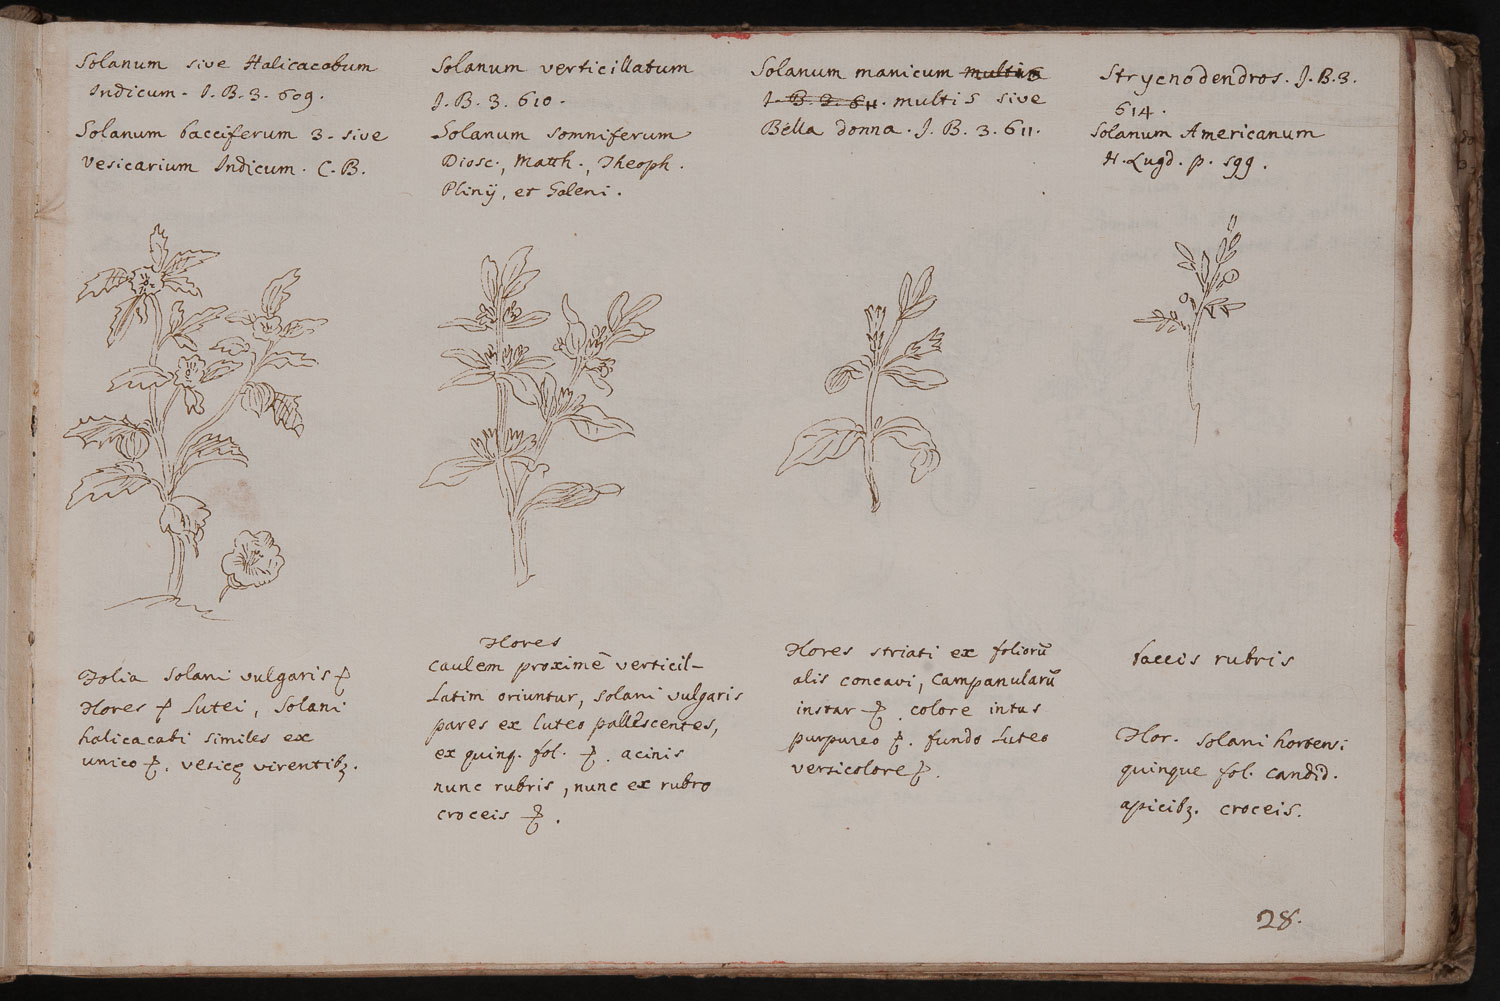 Solanum sive Halicacabum
Indicum. I. B. 3. 609.
Solanum bacciferum 3. sive
vesicarium Indicum. C. B.
Solanum verticillatum
I. B. 3. 610.
Solanum somniferum
Diosc., Matth., Theoph.
Plinÿ, et Galeni.
Solanum manicum multis
I. B. 3. 611. multis sive
Bella donna. I. B. 3. 611.
Strycnodendros. I. B. 3.
614.
Solanum Americanum
H. Lugd. p. 599.
Folia Solani vulgaris
Flores lutei, Solani
halicacabi similes ex
unico vesicę virentibꝫ.
Flores
caulem proximē verticil-
latim oriuntur, solani vulgaris
pares ex luteo pallescentes,
ex quinq. fol. acinis
nunc rubris, nunc ex rubro
croceis .
Flores striati ex foliorū
alis concavi, Campanularū
instar colore intus
purpureo . fundo luteo
versicolore .
baccis rubris
Flor. solani hortensi
quinque fol. candid.
apicibꝫ. croceis.
28.